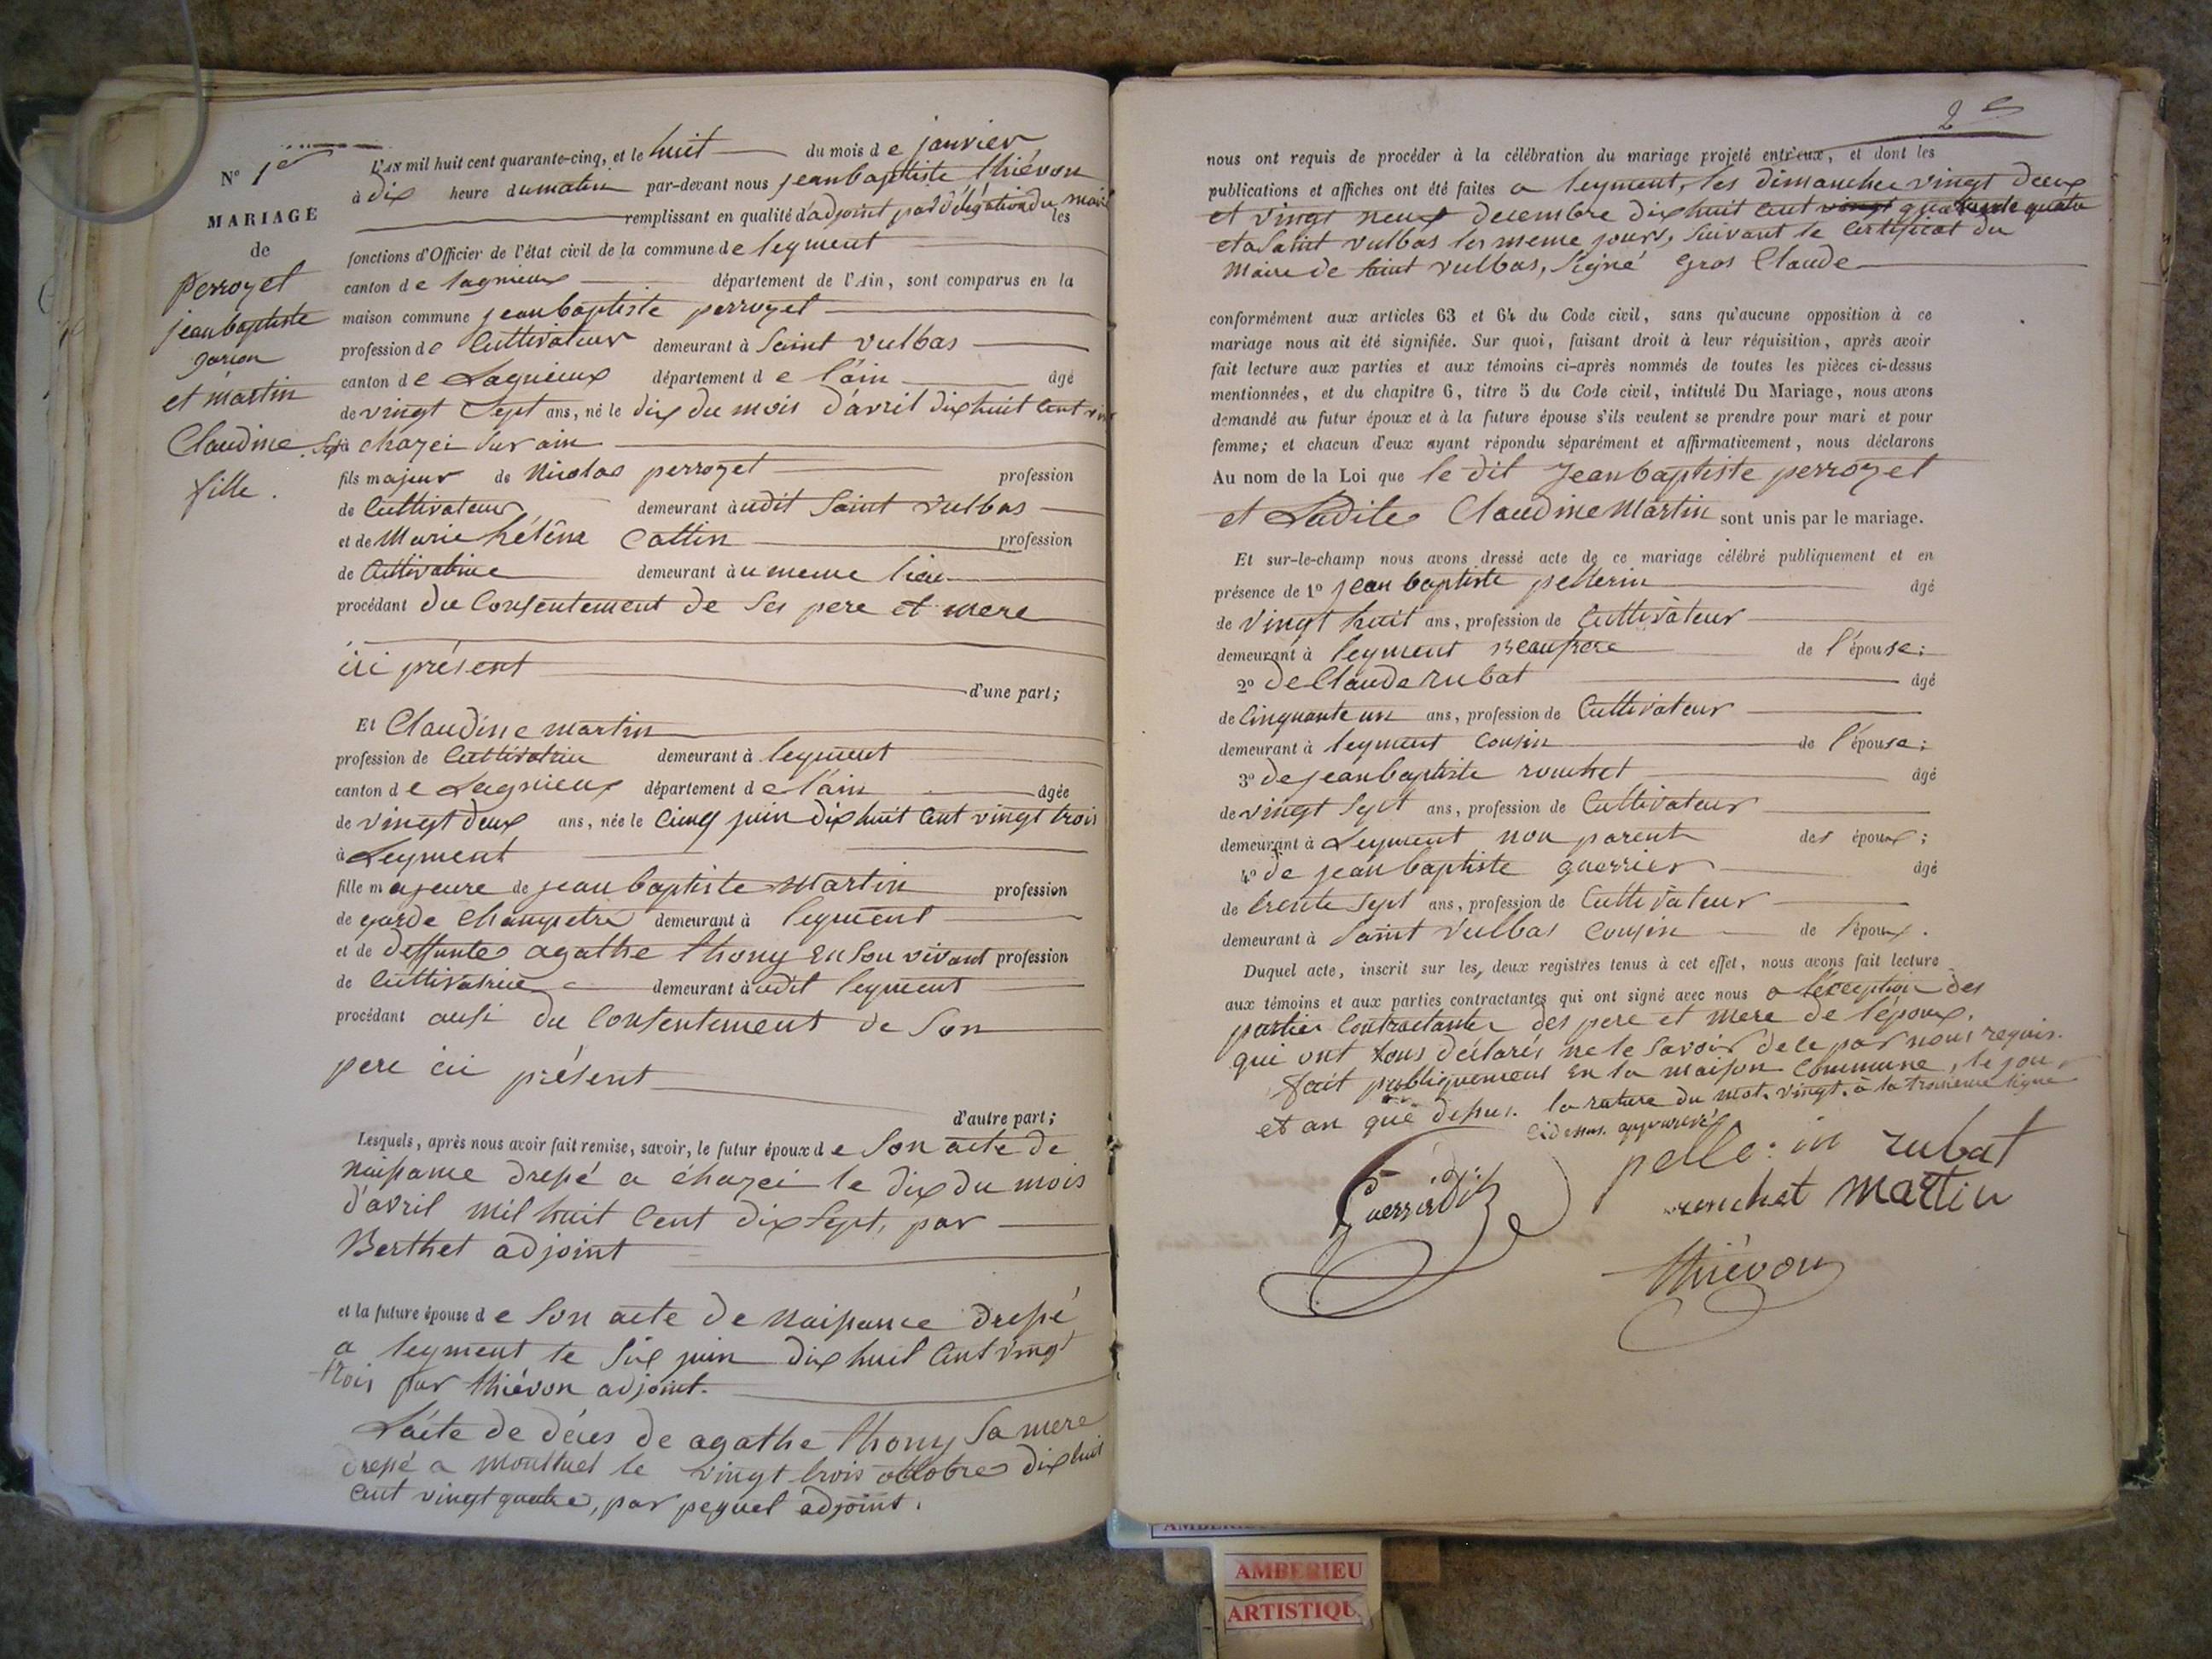 N° 1er
MARIAGE
de
perrozet
jean baptiste
garçon
et martin
Claudine
fille.
L'AN mil huit cent quarante-cinq, et le huit du mois de janvier
à dix heure du matin par-devant nous jean baptiste thiévon
remplissant en qualité d'adjoint par délégation du maire les
fonctions d'Officier de l'état civil de la commune de leyment
canton de lagnieux département de l'Ain, sont comparus en la
maison commune jean baptiste perrozet
profession de Cultivateur demeurant à Saint vulbas
canton de Lagnieux département de l'ain âgé
de vingt Sept ans, né le dix du mois d'avril dix huit Cent
à chazei Sur ain
fils majeur de Nicolas perrozet profession
de Cultivateur demeurant audit Saint vulbas
et de Marie héléne Cattin profession
de Cultivatrice demeurant au meme lieu
procédant du Consentement de Ses pere et mere
ici présent
d'une part;
Et Claudine martin
profession de Cultivatrice demeurant à leyment
canton de Lagnieux département de l'ain âgée
de vingt deux ans, née le Cinq juin dix huit Cent vingt trois
à Leyment
fille majeure de jean baptiste Martin profession
de garde Champetre demeurant à leyment
et de deffunte agathe thony En Son vivant profession
de Cultivatrice demeurant audit leyment
procédant ausi du Consentement de Son
pere ici présent
d'autre part;
Lesquels, après nous avoir fait remise, savoir, le futur époux de Son acte de
Naissance dressé a chazei le dix du mois
d'avril mil huit Cent dix Sept, par
Berthet adjoint
et la future épouse de Son acte de Naissance dressé
a leyment le Six juin dix huit Cent vingt
trois par thiévon adjoint.
L'acte de déces de agathe thony Sa mere
dressé a Montluel le vingt trois octobre dix huit
Cent vingt quatre, par peguel adjoint.
2e
nous ont requis de procéder à la célébration du mariage projeté entr'eux, et dont les
publications et affiches ont été faites a leyment, les dimanches vingt deux
et vingt neuf decembre dix huit Cent vingt quarante quatre
et a Saint vulbas les meme jours, Suivant le Certificat du
Maire de Saint vulbas, Signé Gros Claude
conformément aux articles 63 et 64 du Code civil, sans qu'aucune opposition à ce
mariage nous ait été signifiée. Sur quoi, faisant droit à leur réquisition, après avoir
fait lecture aux parties et aux témoins ci-après nommés de toutes les pièces ci-dessus
mentionnées, et du chapitre 6, titre 5 du Code civil, intitulé Du Mariage, nous avons
demandé au futur époux et à la future épouse s'ils veulent se prendre pour mari et pour
femme; et chacun d'eux ayant répondu séparément et affirmativement, nous déclarons
Au nom de la Loi que le dit Jean baptiste perrozet
et Ladite Claudine Martin sont unis par le mariage.
Et sur-le-champ nous avons dressé acte de ce mariage célébré publiquement et en
présence de 1° jean baptiste pellerin âgé
de vingt huit ans, profession de Cultivateur
demeurant à leyment Beaufrere de l'épouse;
2° de Claude rubat âgé
de Cinquante un ans, profession de Cultivateur
demeurant à leyment Cousin de l'épouse;
3° de jean baptiste ronchet âgé
de vingt Sept ans, profession de Cultivateur
demeurant à Leyment non parent des époux;
4° de jean baptiste guerrier âgé
de trente Sept ans, profession de Cultivateur
demeurant à Saint Vulbas Cousin de l'époux.
Duquel acte, inscrit sur les deux registres tenus à cet effet, nous avons fait lecture
aux témoins et aux parties contractantes qui ont signé avec nous a l'exception des
parties Contractantes des pere et mere de l'époux,
qui ont tous déclarés ne le Savoir de ce par nous requis.
fait publiquement En la maison Commune, le jour
et an que dessus. la rature du mot. vingt. à la troisieme ligne
Cidessus. approuvé
Guerrier pelle:in rubat
ronchet martin
thiévon
AMBERIEU
ARTISTIQU